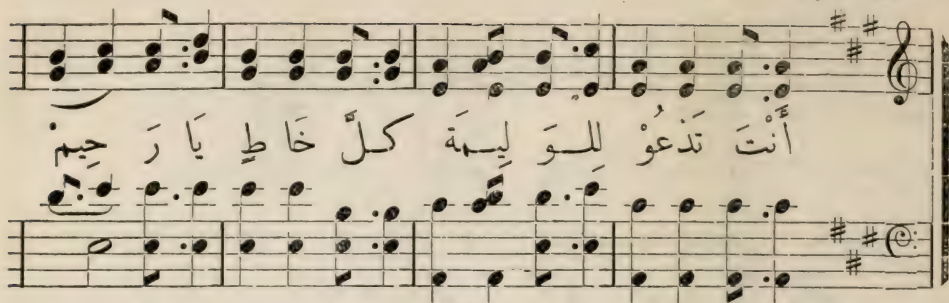 أَنْتَ تَدْعُوْ لِلـوَ لِيـمَة كـلَّ خَا طٍ يَا رَ حِيمْ